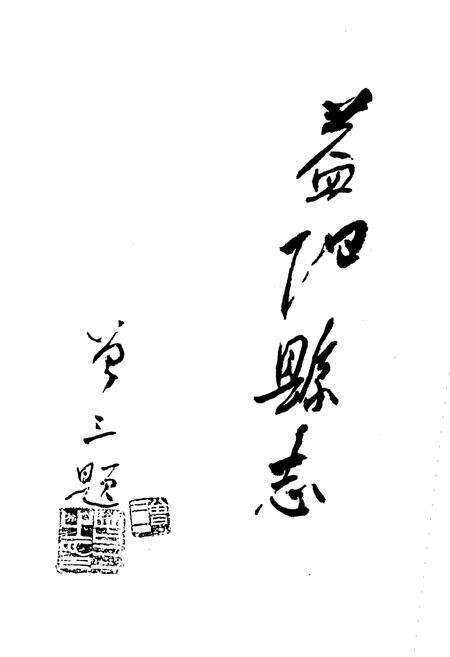 益阳縣志
曾三题